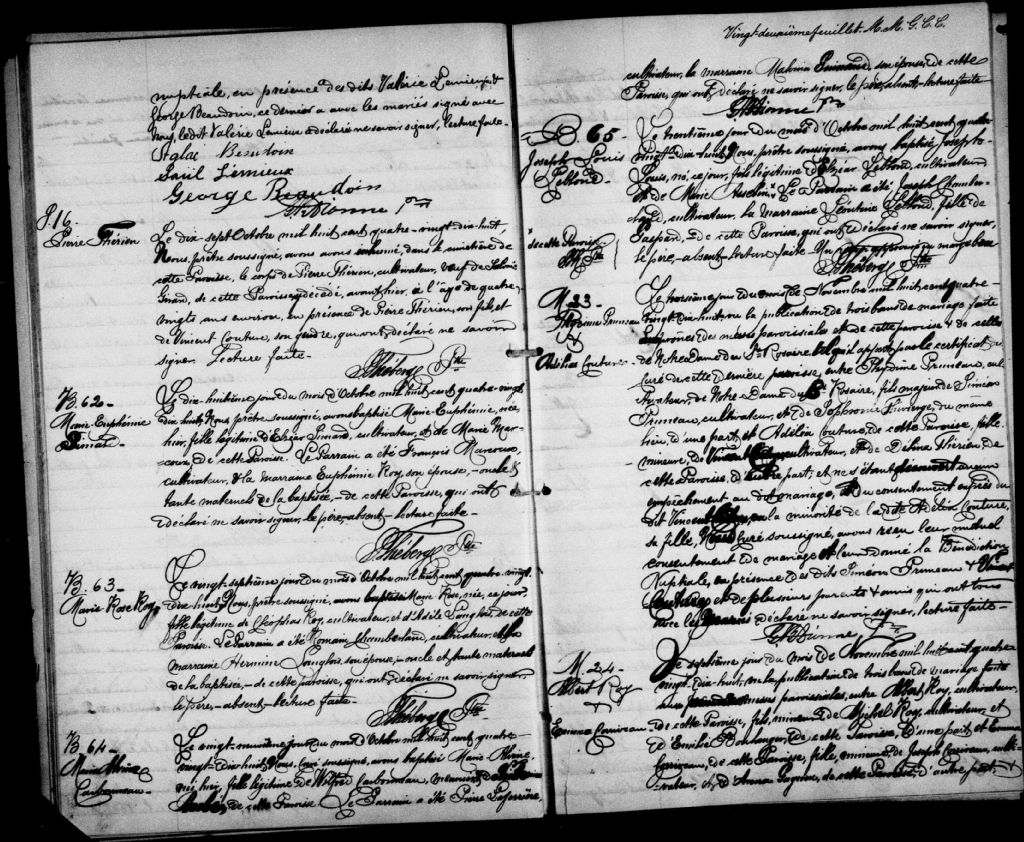 nuptiale, en présence des dits Valérie Lemieux &
George Beaudoin, ce dernier a avec les mariés signé avec
nous, ledit Valérie Lemieux a déclaré ne savoir signer, lecture faite-
Aglaé Beaudoin
Lemieux
George Beaudoin
Ptre
S. 16.
Pierre Thérien
Le dix-sept Octobre mil huit cent quatre-vingt dix huit,
Nous, prêtre soussigné, avons inhumé, dans le cimetière de
cette Paroisse, le corps de Pierre Thérien, cultivateur, veuf de
de cette Paroisse, décédé, avant hier, à l'âge de quatre-
vingts ans environ, en présence de Pierre Thérien, son fils, et
de Vincent Couture, son gendre, qui ont déclaré ne savoir
signer Lecture faite-
JThéberge Ptre
B. 62-
Marie-Euphémie
Simard-
Le dix-huitième jour du mois d'Octobre mil huit cent quatre-vingt
dix huit, Nous prêtre soussigné, avons baptisé Marie-Euphémie, née
hier, fille légitime d'Elzéar Simard, cultivateur, et de Marie Mar-
coux, de cette Paroisse. Le Parrain a été François Marcoux,
cultivateur, & la marraine Euphémie Roy, son épouse,-oncle &
tante maternels de la baptisée,-de cette Paroisse, qui ont
déclaré ne savoir signer, le père, absent-lecture faite-
JThéberge Ptre
B. 63-
Marie Rose Roy
Le vingt-septième jour du mois d'Octobre mil huit cent quatre-vingt-
dix-huit, Nous, prêtre soussigné, avons baptisé Marie Rose, née, ce jour,
fille légitime de Cléophas Roy, cultivateur, et d'Adèle Langlois de cette
Paroisse. Le Parrain a été Romain Chamberland, cultivateur, et la
marraine Hermine Langlois, son épouse,-oncle et tante maternels
de la baptisée,-de cette paroisse, qui ont déclaré ne savoir signer,
le père,-absent-lecture faite-
JThéberge Ptre
B. 64-
Marie
Carbonneau-
Le vingt-neuvième jour du mois d'Octobre mil huit cent quatre-
vingt-dix huit, Nous, Curé soussigné, avons baptisé Marie
née hier, fille légitime de Wilfrid Carbonneau, meunier, &
de cette Paroisse Le Parrain a été Pierre Laferrière,
Vingt-deuxième feuillet. M. M. G. C. C.
cultivateur, la marraine Malvina son épouse, de cette
Paroisse, qui ont déclaré ne savoir signer, le père, absent, lecture faite
Ptre
B. 65-
Joseph Louis
Leblond-
Le trentième jour du mois d'Octobre mil huit cent quatre
vingt-dix-huit, Nous, prêtre soussigné, avons baptisé Joseph
Louis, né, ce jour, fils légitime d'Elzéar Leblond, cultivateur
et de Marie Asselin. Le Parrain a été Joseph Chamber-
land, cultivateur, la marraine Léontine Leblond, fille de
Gaspard, de cette Paroisse, qui ont déclaré ne savoir signer,
le père,-absent-lecture faite Un approuvé en marge bon
x de cette Paroisse
Ptre
JThéberge Ptre
M. 23-
Thydime Pruneau
&
Adélia Couture-
Le troisième jour du mois de Novembre mil huit cent quatre-
vingt-dix huit, vu la publication de trois bans de mariage faite
aux prônes des messes paroissiales et de cette paroisse & de celle
de Notre Dame du St. Rosaire tel qu'il appert par le certificat du
curé de cette dernière paroisse, entre Thydime Pruneau, cul-
tivateur, de Notre-Dame du St Rosaire, fils majeur de Siméon
Pruneau, cultivateur, et de Sophronie Théberge, du même
lieu, d'une part, et Adélia Couture, de cette Paroisse, fille
mineure, de Vincent Couture, cultivateur, et de Délina Thérien, de
cette Paroisse, d'autre part, et ne s'étant découvert aucun
empêchement au dit mariage, & du consentement exprès du
dit Vincent Couture, vu la minorité de la dite Adélia Couture,
sa fille, Nous Curé soussigné, avons reçu leur mutuel
consentement de mariage et leur donné la Bénédiction
Nuptiale, en présence des dits Siméon Pruneau & Vincent
Couture, et de plusieurs parents & amis qui ont tous
avec les mariés déclaré ne savoir signer, lecture faite-
Ptre
M. 24-
Albert Roy
&
Emma Corriveau-
Le septième jour du mois de Novembre mil huit cent quatre
vingt-dix huit, vu la publication de trois bans de mariage faite
aux prônes des messes paroissiales, entre Albert Roy, cultivateur,
de cette Paroisse, fils, mineur, de Michel Roy, cultivateur, et
d'Emilie Boulanger, de cette Paroisse, d'une part, et Emma
Corriveau, de cette Paroisse, fille, mineure, de Joseph Corriveau, culti-
vateur, et d'Anna Gagnon, de cette Paroisse, d'autre part, &